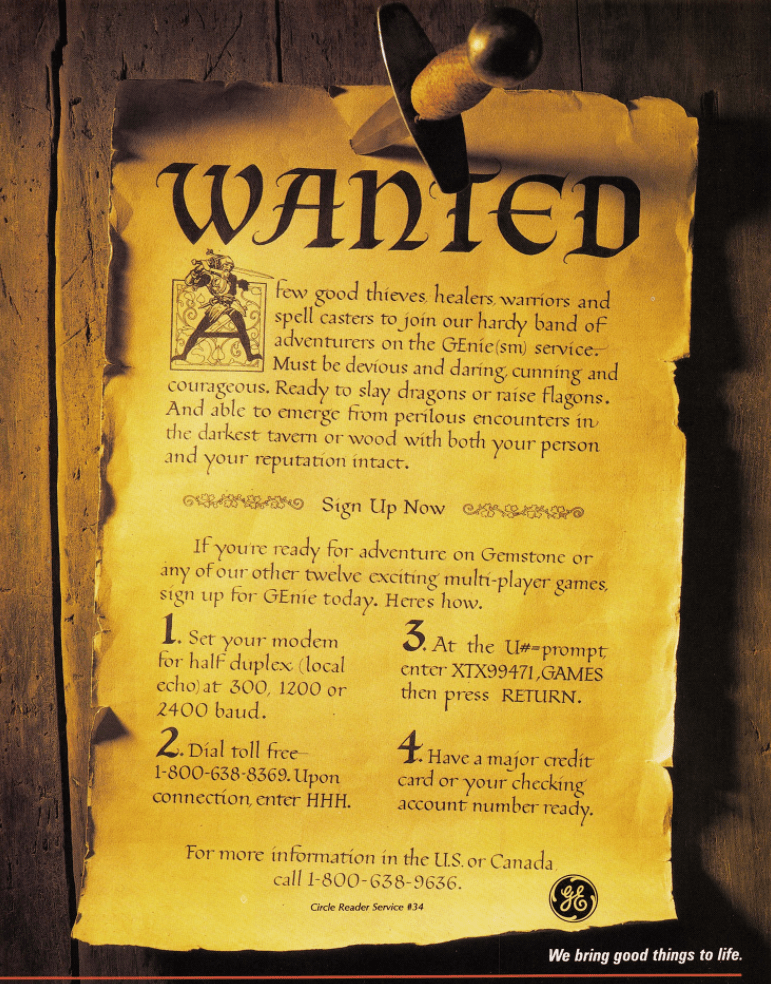 WANTED
A few good thieves, healers, warriors and
spell casters to join our hardy band of
adventurers on the GEnie(sm) service.
Must be devious and daring, cunning and
courageous. Ready to slay dragons or raise flagons.
And able to emerge from perilous encounters in
the darkest tavern or wood with both your person
and your reputation intact.
Sign Up Now
If you're ready for adventure on Gemstone or
any of our other twelve exciting multi-player games,
sign up for GEnie today. Here's how.
1. Set your modem
for half duplex (local
echo) at 300, 1200 or
2400 baud.
2. Dial toll free—
1-800-638-8369. Upon
connection, enter HHH.
3. At the U#=prompt,
enter XTX99471,GAMES
then press RETURN.
4. Have a major credit
card or your checking
account number ready.
For more information in the U.S. or Canada,
call 1-800-638-9636.
Circle Reader Service #34
GE
We bring good things to life.